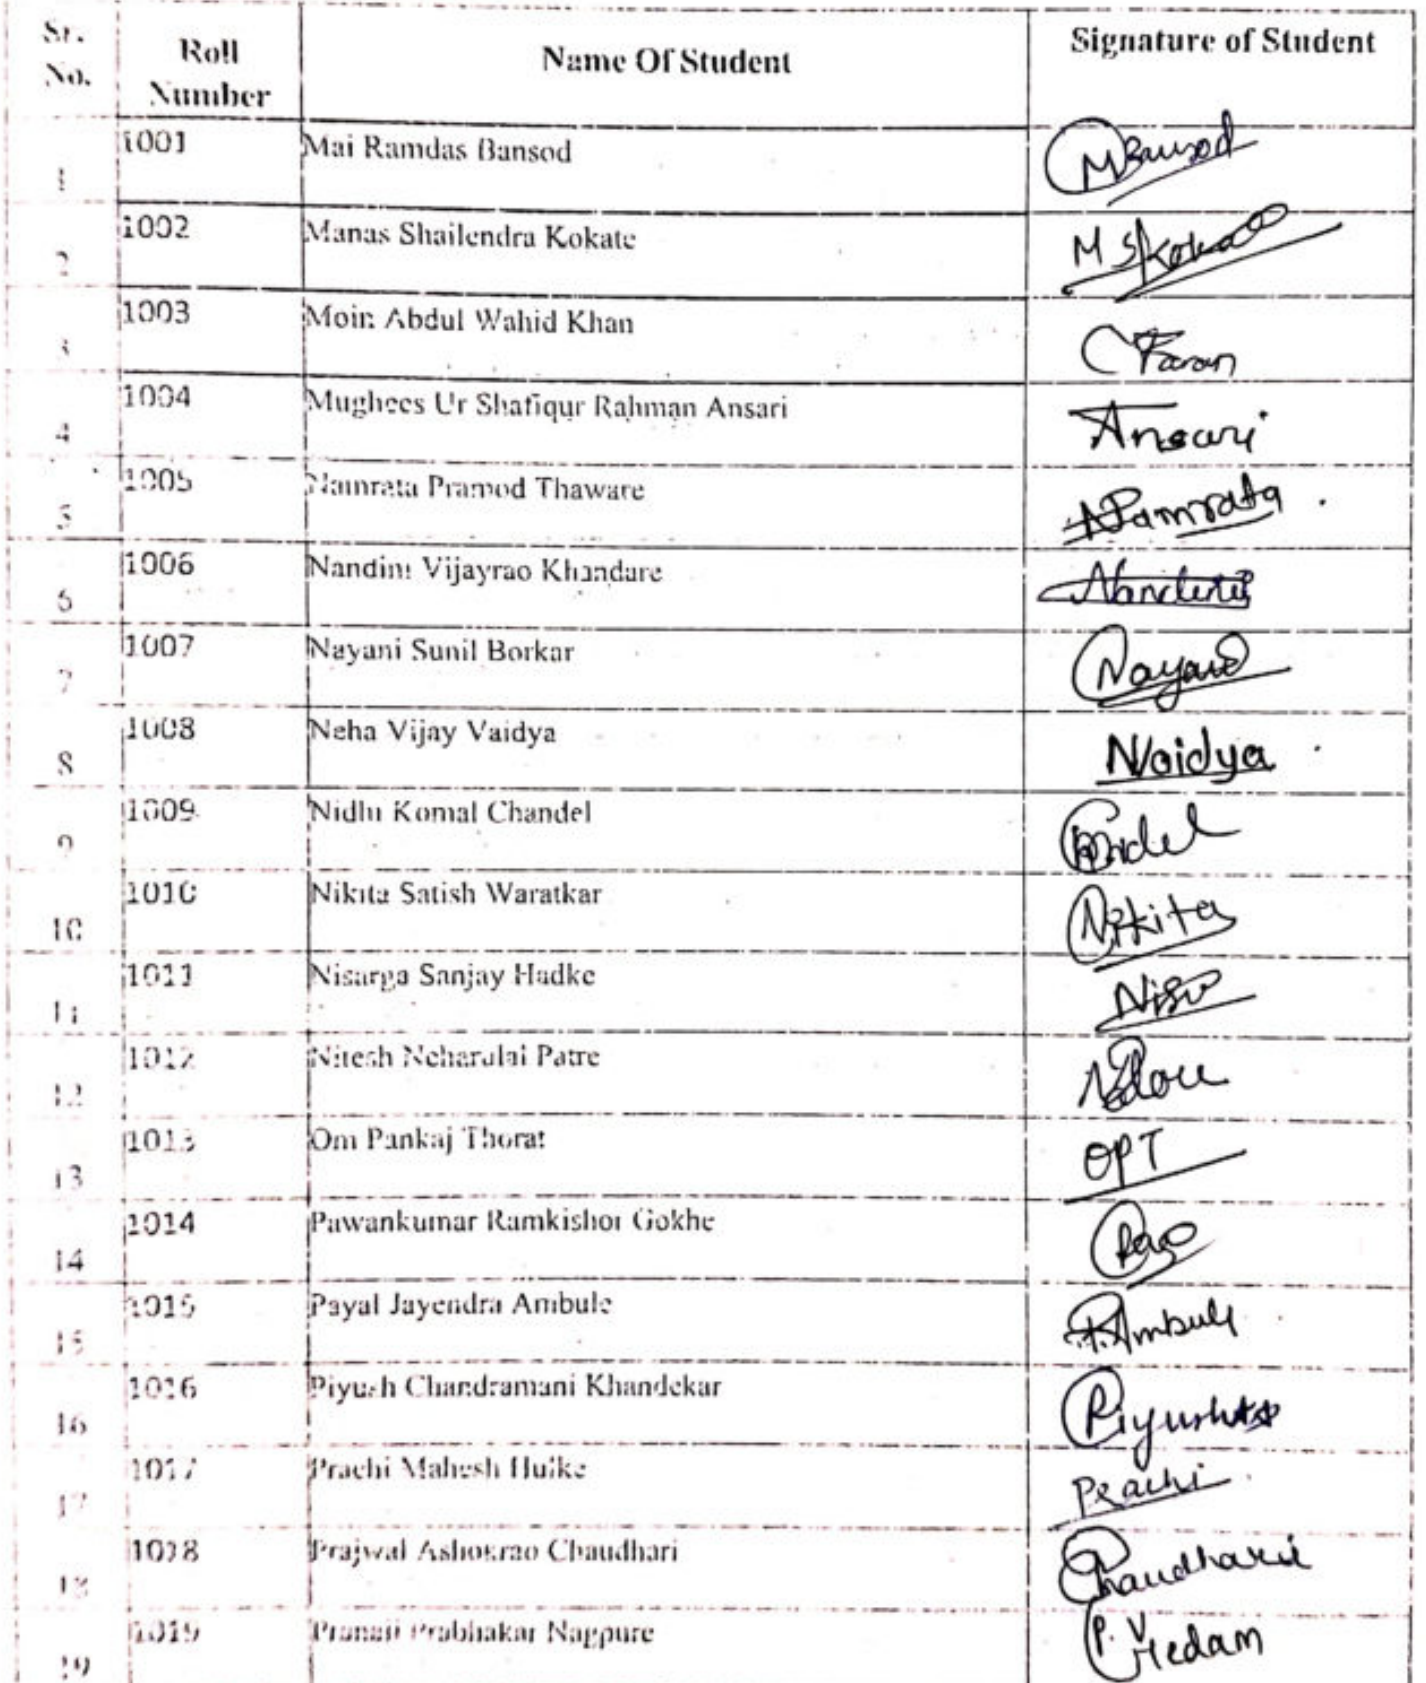 Sr. No. Roll Number Name Of Student Signature of Student
1 1001 Mai Ramdas Bansod MBansod
2 1002 Manas Shailendra Kokate M S Kokate
3 1003 Moin Abdul Wahid Khan
4 1004 Mughees Ur Shafiqur Rahman Ansari Ansari
5 1005 Namrata Pramod Thaware Namrata
6 1006 Nandini Vijayrao Khandare Nandini
7 1007 Nayani Sunil Borkar Nayani
8 1008 Neha Vijay Vaidya NVaidya
9 1009 Nidhi Komal Chandel
10 1010 Nikita Satish Waratkar Nikita
11 1011 Nisarga Sanjay Hadke
12 1012 Nitesh Neharulal Patre
13 1013 Om Pankaj Thorat OPT
14 1014 Pawankumar Ramkishor Gokhe
15 1015 Payal Jayendra Ambule P.Ambule
16 1016 Piyush Chandramani Khandekar
17 1017 Prachi Mahesh Hulke Prachi
18 1018 Prajwal Ashokrao Chaudhari Chaudhari
19 1019 Prabhakar Nagpure